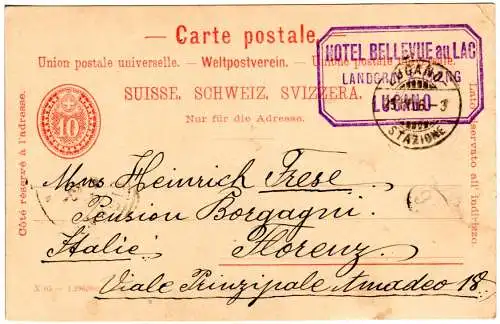 Carte postale.
Union postale universelle. – Weltpostverein. – Unione postale
SUISSE. SCHWEIZ. SVIZZERA.
Nur für die Adresse.
Côté réservé à l'adresse.
Lato riservato all' indirizzo.
10
HOTEL BELLEVUE au LAC
LUGANO
LUGANO
STAZIONE
Mons Heinrich Frese
Pension Borgagni
Italie. Florenz
Viale Principale Amadeo 18.